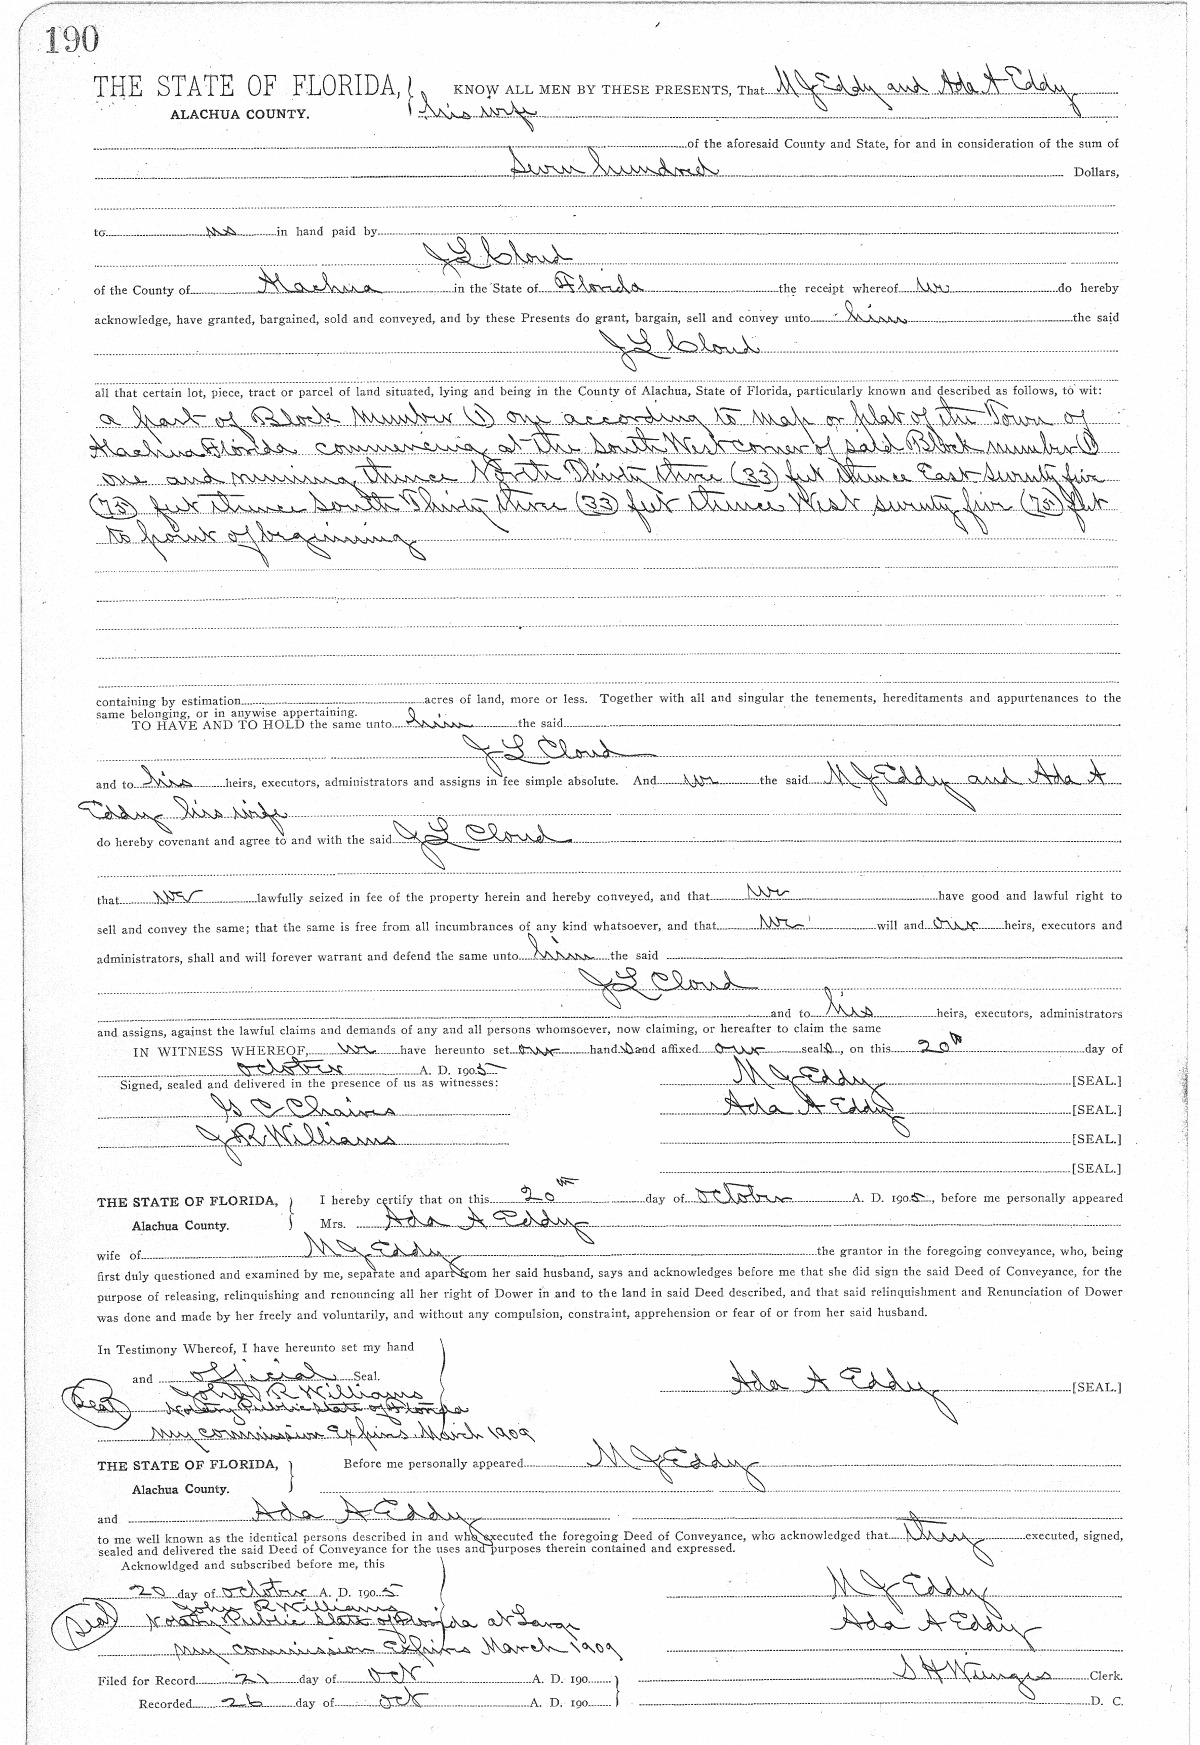 190
THE STATE OF FLORIDA, KNOW ALL MEN BY THESE PRESENTS, That M J Eddy and Ada A Eddy
ALACHUA COUNTY. his wife
of the aforesaid County and State, for and in consideration of the sum of
Seven hundred Dollars,
to us in hand paid by
J L Cloud
of the County of Alachua in the State of Florida the receipt whereof we do hereby
acknowledge, have granted, bargained, sold and conveyed, and by these Presents do grant, bargain, sell and convey unto him the said
J L Cloud
all that certain lot, piece, tract or parcel of land situated, lying and being in the County of Alachua, State of Florida, particularly known and described as follows, to wit:
a part of Block number (1) one according to map or plat of the Town of
Alachua Florida commencing at the South West corner of said Block number (1)
one and running thence North Thirty three (33) feet thence East seventy five
(75) feet thence South Thirty three (33) feet thence West seventy five (75) feet
to point of beginning
containing by estimation acres of land, more or less. Together with all and singular the tenements, hereditaments and appurtenances to the
same belonging, or in anywise appertaining.
TO HAVE AND TO HOLD the same unto him the said
J L Cloud
and to his heirs, executors, administrators and assigns in fee simple absolute. And we the said M J Eddy and Ada A
Eddy his wife
do hereby covenant and agree to and with the said J L Cloud
that we lawfully seized in fee of the property herein and hereby conveyed, and that we have good and lawful right to
sell and convey the same; that the same is free from all incumbrances of any kind whatsoever, and that we will and our heirs, executors and
administrators, shall and will forever warrant and defend the same unto him the said
J L Cloud
and to his heirs, executors, administrators
and assigns, against the lawful claims and demands of any and all persons whomsoever, now claiming, or hereafter to claim the same
IN WITNESS WHEREOF, we have hereunto set our hands and affixed our seals, on this 20th day of
October A. D. 1905
Signed, sealed and delivered in the presence of us as witnesses: M J Eddy [SEAL.]
G C Chaires Ada A Eddy [SEAL.]
J R Williams [SEAL.]
[SEAL.]
THE STATE OF FLORIDA, I hereby certify that on this 20th day of October A. D. 1905, before me personally appeared
Alachua County. Mrs. Ada A Eddy
wife of M J Eddy the grantor in the foregoing conveyance, who, being
first duly questioned and examined by me, separate and apart from her said husband, says and acknowledges before me that she did sign the said Deed of Conveyance, for the
purpose of releasing, relinquishing and renouncing all her right of Dower in and to the land in said Deed described, and that said relinquishment and Renunciation of Dower
was done and made by her freely and voluntarily, and without any compulsion, constraint, apprehension or fear of or from her said husband.
In Testimony Whereof, I have hereunto set my hand
and official Seal. Ada A Eddy [SEAL.]
Seal John R Williams
Notary Public State of Florida
My commission Expires March 1909
THE STATE OF FLORIDA, Before me personally appeared M J Eddy
Alachua County.
and Ada A Eddy
to me well known as the identical persons described in and who executed the foregoing Deed of Conveyance, who acknowledged that they executed, signed,
sealed and delivered the said Deed of Conveyance for the uses and purposes therein contained and expressed.
Acknowldged and subscribed before me, this
20 day of October A. D. 1905 M J Eddy
John R Williams
Seal Notary Public State of Florida at Large Ada A Eddy
My commission Expires March 1909
Filed for Record 21 day of Oct A. D. 190 S H Wienges Clerk.
Recorded 26 day of Oct A. D. 190 D. C.